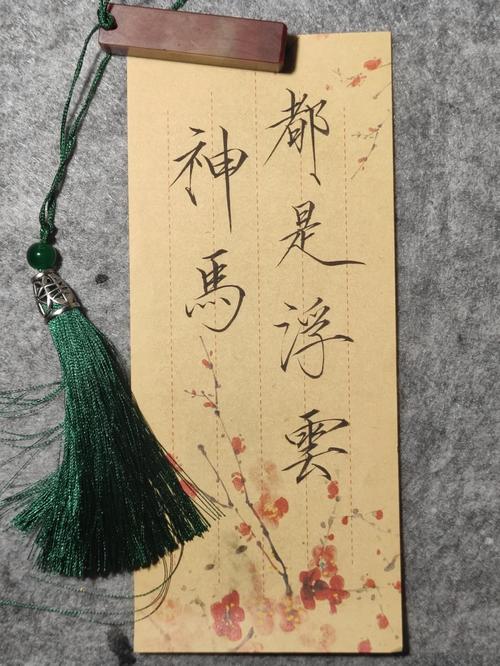 都是浮雲
神馬